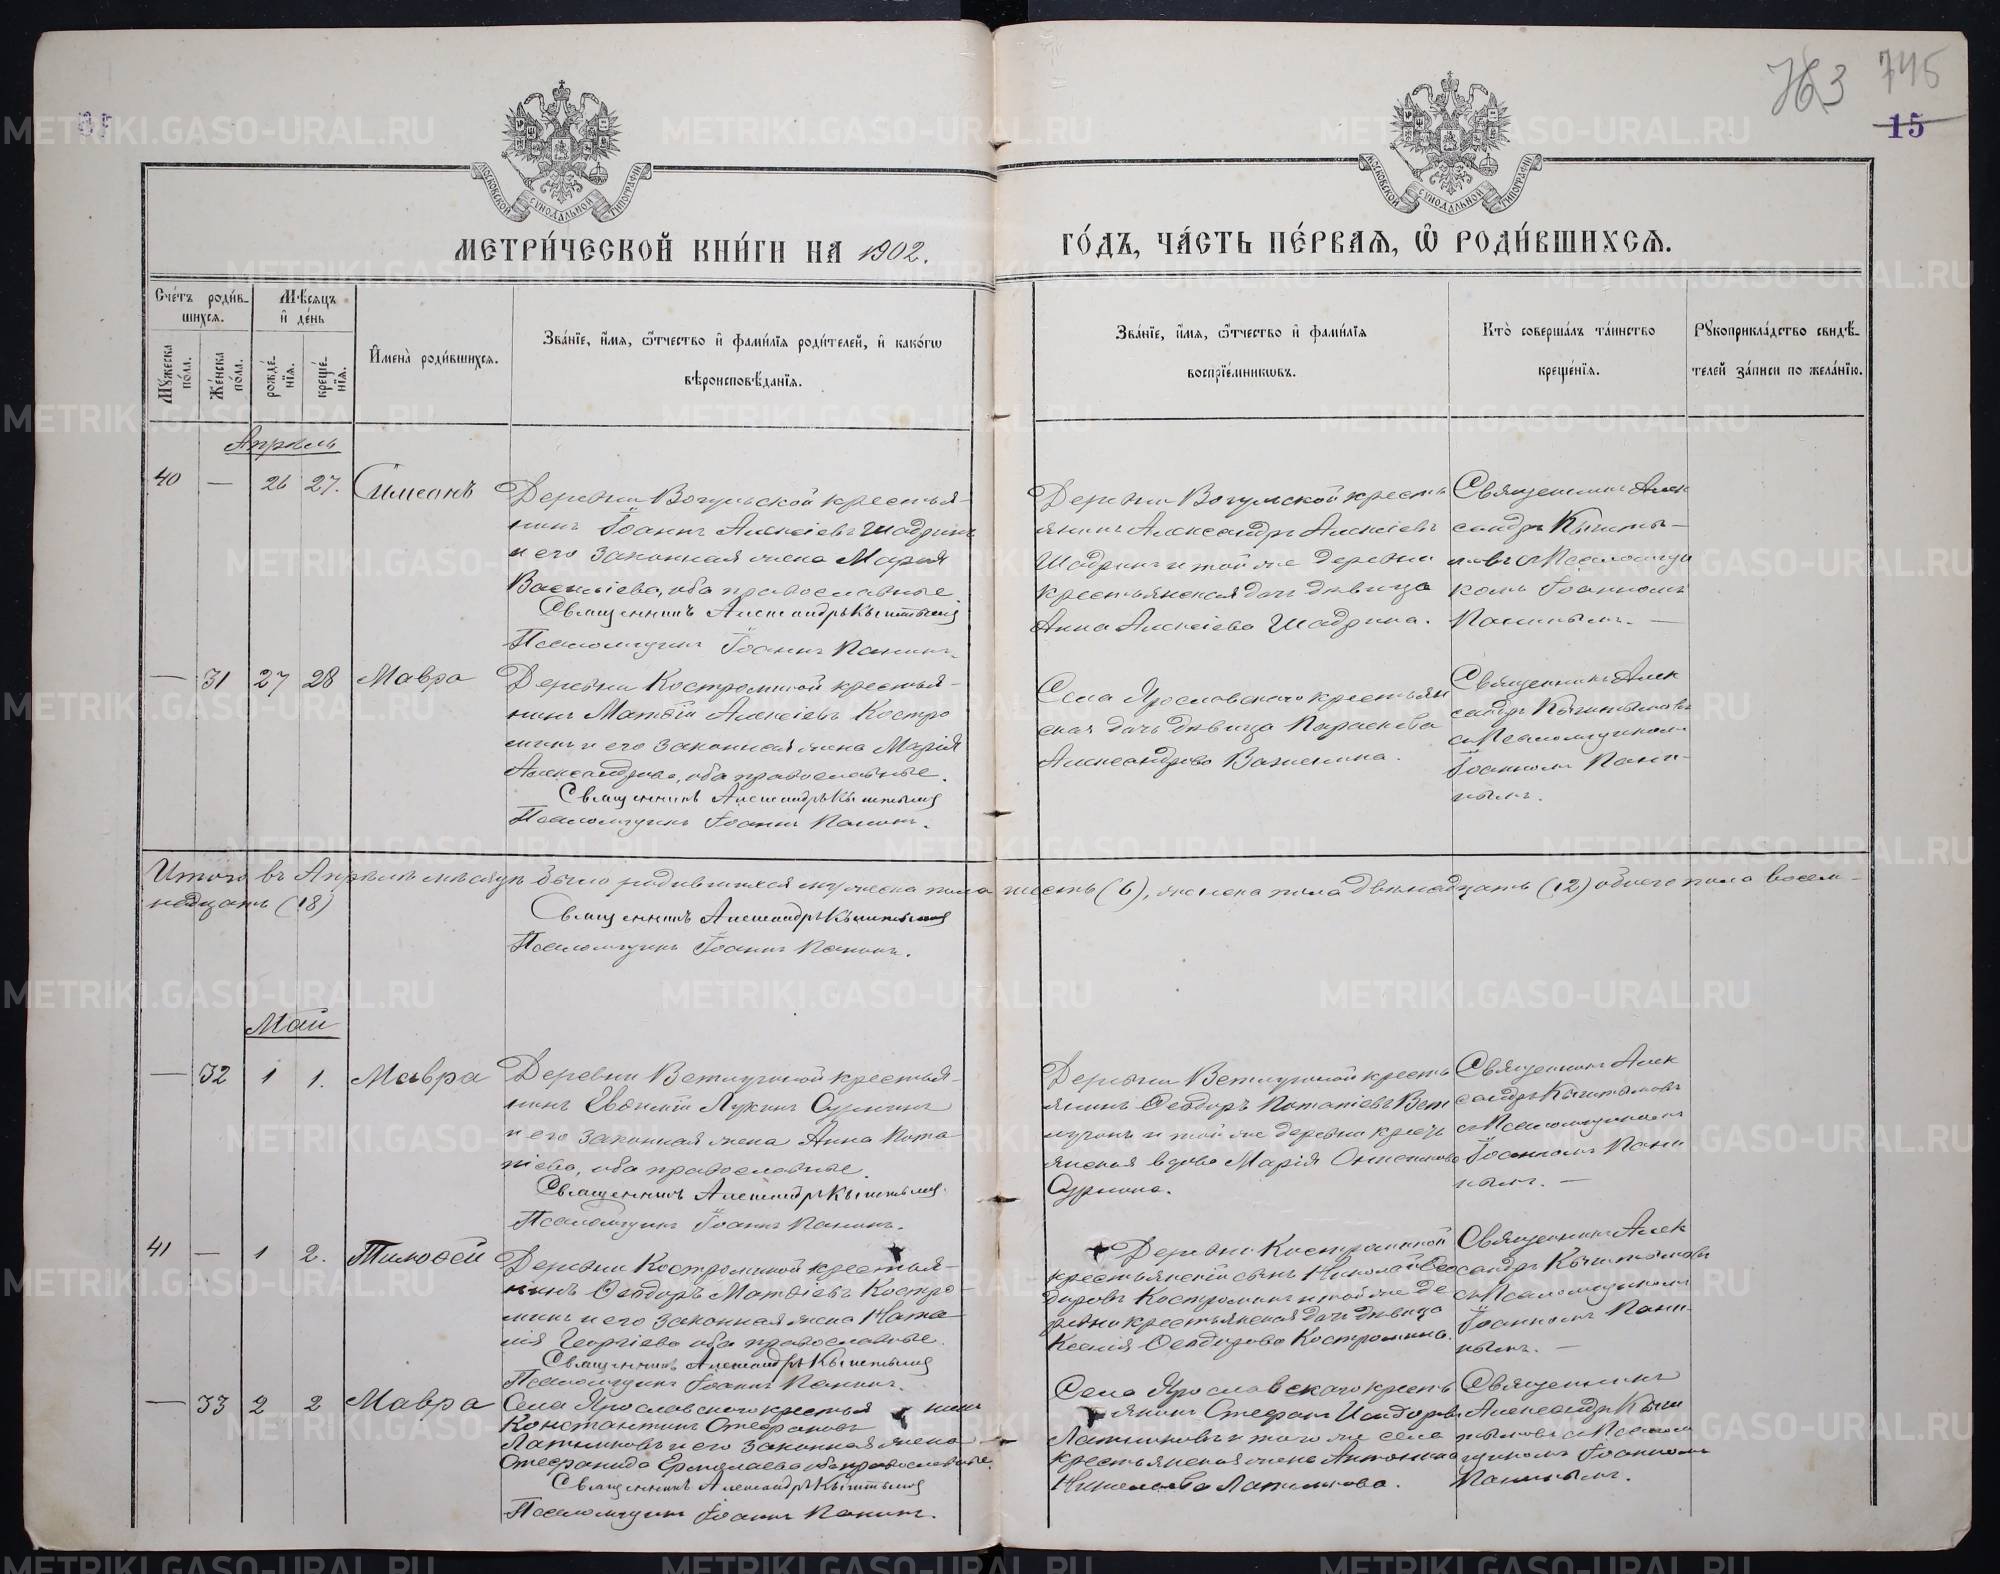 763 745
15
МОСКОВСКОЙ СѴНОДАЛЬНОЙ ТИПОГРАФІИ
МОСКОВСКОЙ СѴНОДАЛЬНОЙ ТИПОГРАФІИ
МЕТРИ́ЧЕСКОЙ КНИ́ГИ НА 1902.
ГО́ДЪ, ЧА́СТЬ ПЕ́РВАЯ, Ѡ РОДИ́ВШИХСЯ.
Сче́тъ роди́в-
шихся.
Мѣсяцъ
и де́нь
Му́жеска по́ла.
Же́нска по́ла.
рожде́-
нія.
креще́-
нія.
Имена̀ роди́вшихся.
Зва́ніе, и́мя, ѻ́тчество и фами́лія роди́телей, и како́гѡ
вѣроисповѣ́данія.
Зва́ніе, и́мя, ѻ́тчество и фами́лія
воспріе́мниковъ.
Кто̀ соверша́лъ та́инство
креще́нія.
Рукоприкла́дство свидѣ́-
телей за́писи по жела́нію.
Апрѣль
40 — 26 27. Симеонъ
Деревни Вогульской крестья-
нинъ Іоаннъ Алексіевъ Шадринъ
и его законная жена Марія
Васильіева, оба православные.
Священникъ Александръ Кыштымовъ
Псаломщикъ Іоаннъ Панинъ.
Деревни Вогульской кресть
янинъ Александръ Алексіевъ
Шадринъ и той же деревни
крестьянская дочь дѣвица
Анна Алексіева Шадрина.
Священникъ Алек
сандръ Кышты-
мовъ съ Псаломщи
комъ Іоанномъ
Панинымъ. —
— 31 27 28 Мавра
Деревни Костроминой крестья-
нинъ Матѳій Алексіевъ Костро
минъ и его законная жена Марія
Александрова, оба православные.
Священникъ Александръ Кыштымовъ
Псаломщикъ Іоаннъ Панинъ.
Села Ярославскаго крестьян
ская дочь дѣвица Параскева
Александрова Важенина.
Священникъ Алек
сандръ Кыштымовъ
съ Псаломщикомъ
Іоанномъ Пани-
нымъ.
Итого въ Апрѣлѣ мѣсяцѣ было родившихся мужеска пола шесть (6), женска пола двѣнадцать (12) обоего пола восем-
надцать (18)
Священникъ Александръ Кыштымовъ
Псаломщикъ Іоаннъ Панинъ.
Май
— 32 1 1. Мавра
Деревни Ветлугиной крестья-
нинъ Евѳимій Лукинъ Сурнинъ
и его законная жена Анна Пота
піева, оба православные.
Священникъ Александръ Кыштымовъ.
Псаломщикъ Іоаннъ Панинъ.
Деревни Ветлугиной кресть
янинъ Ѳеодоръ Потапіевъ Вет
лугинъ и той же деревни кресть
янская вдова Марія
Сурнина.
Священникъ Алек
сандръ Кыштымовъ
съ Псаломщикомъ
Іоанномъ Пани
нымъ. —
41 — 1 2. Тимоѳей
Деревни Костроминой крестья-
нинъ Ѳеодоръ Матѳіевъ Костро-
минъ и его законная жена Ната
лія Георгіева оба православные.
Священникъ Александръ Кыштымовъ
Псаломщикъ Іоаннъ Панинъ.
Деревни Костроминой
крестьянскій сынъ Николай Ѳео
доровъ Костроминъ и той же де
ревни крестьянская дочь дѣвица
Ксенія Ѳеодорова Костромина.
Священникъ Алек
сандръ Кыштымовъ
съ Псаломщикомъ
Іоанномъ Пани-
нымъ. —
— 33 2 2 Мавра
Села Ярославскаго крестья нинъ
Константинъ Стефановъ
Латниковъ и его законная жена
Стефанида Ермолаева оба православные.
Священникъ Александръ Кыштымовъ
Псаломщикъ Іоаннъ Панинъ.
Села Ярославскаго кресть
янинъ Стефанъ Исидоровъ
Латниковъ и того же села
крестьянская жена Антонина
Николаева Латникова.
Священникъ
Александръ Кыш
тымовъ съ Псалом
щикомъ Іоанномъ
Панинымъ.
METRIKI.GASO-URAL.RU